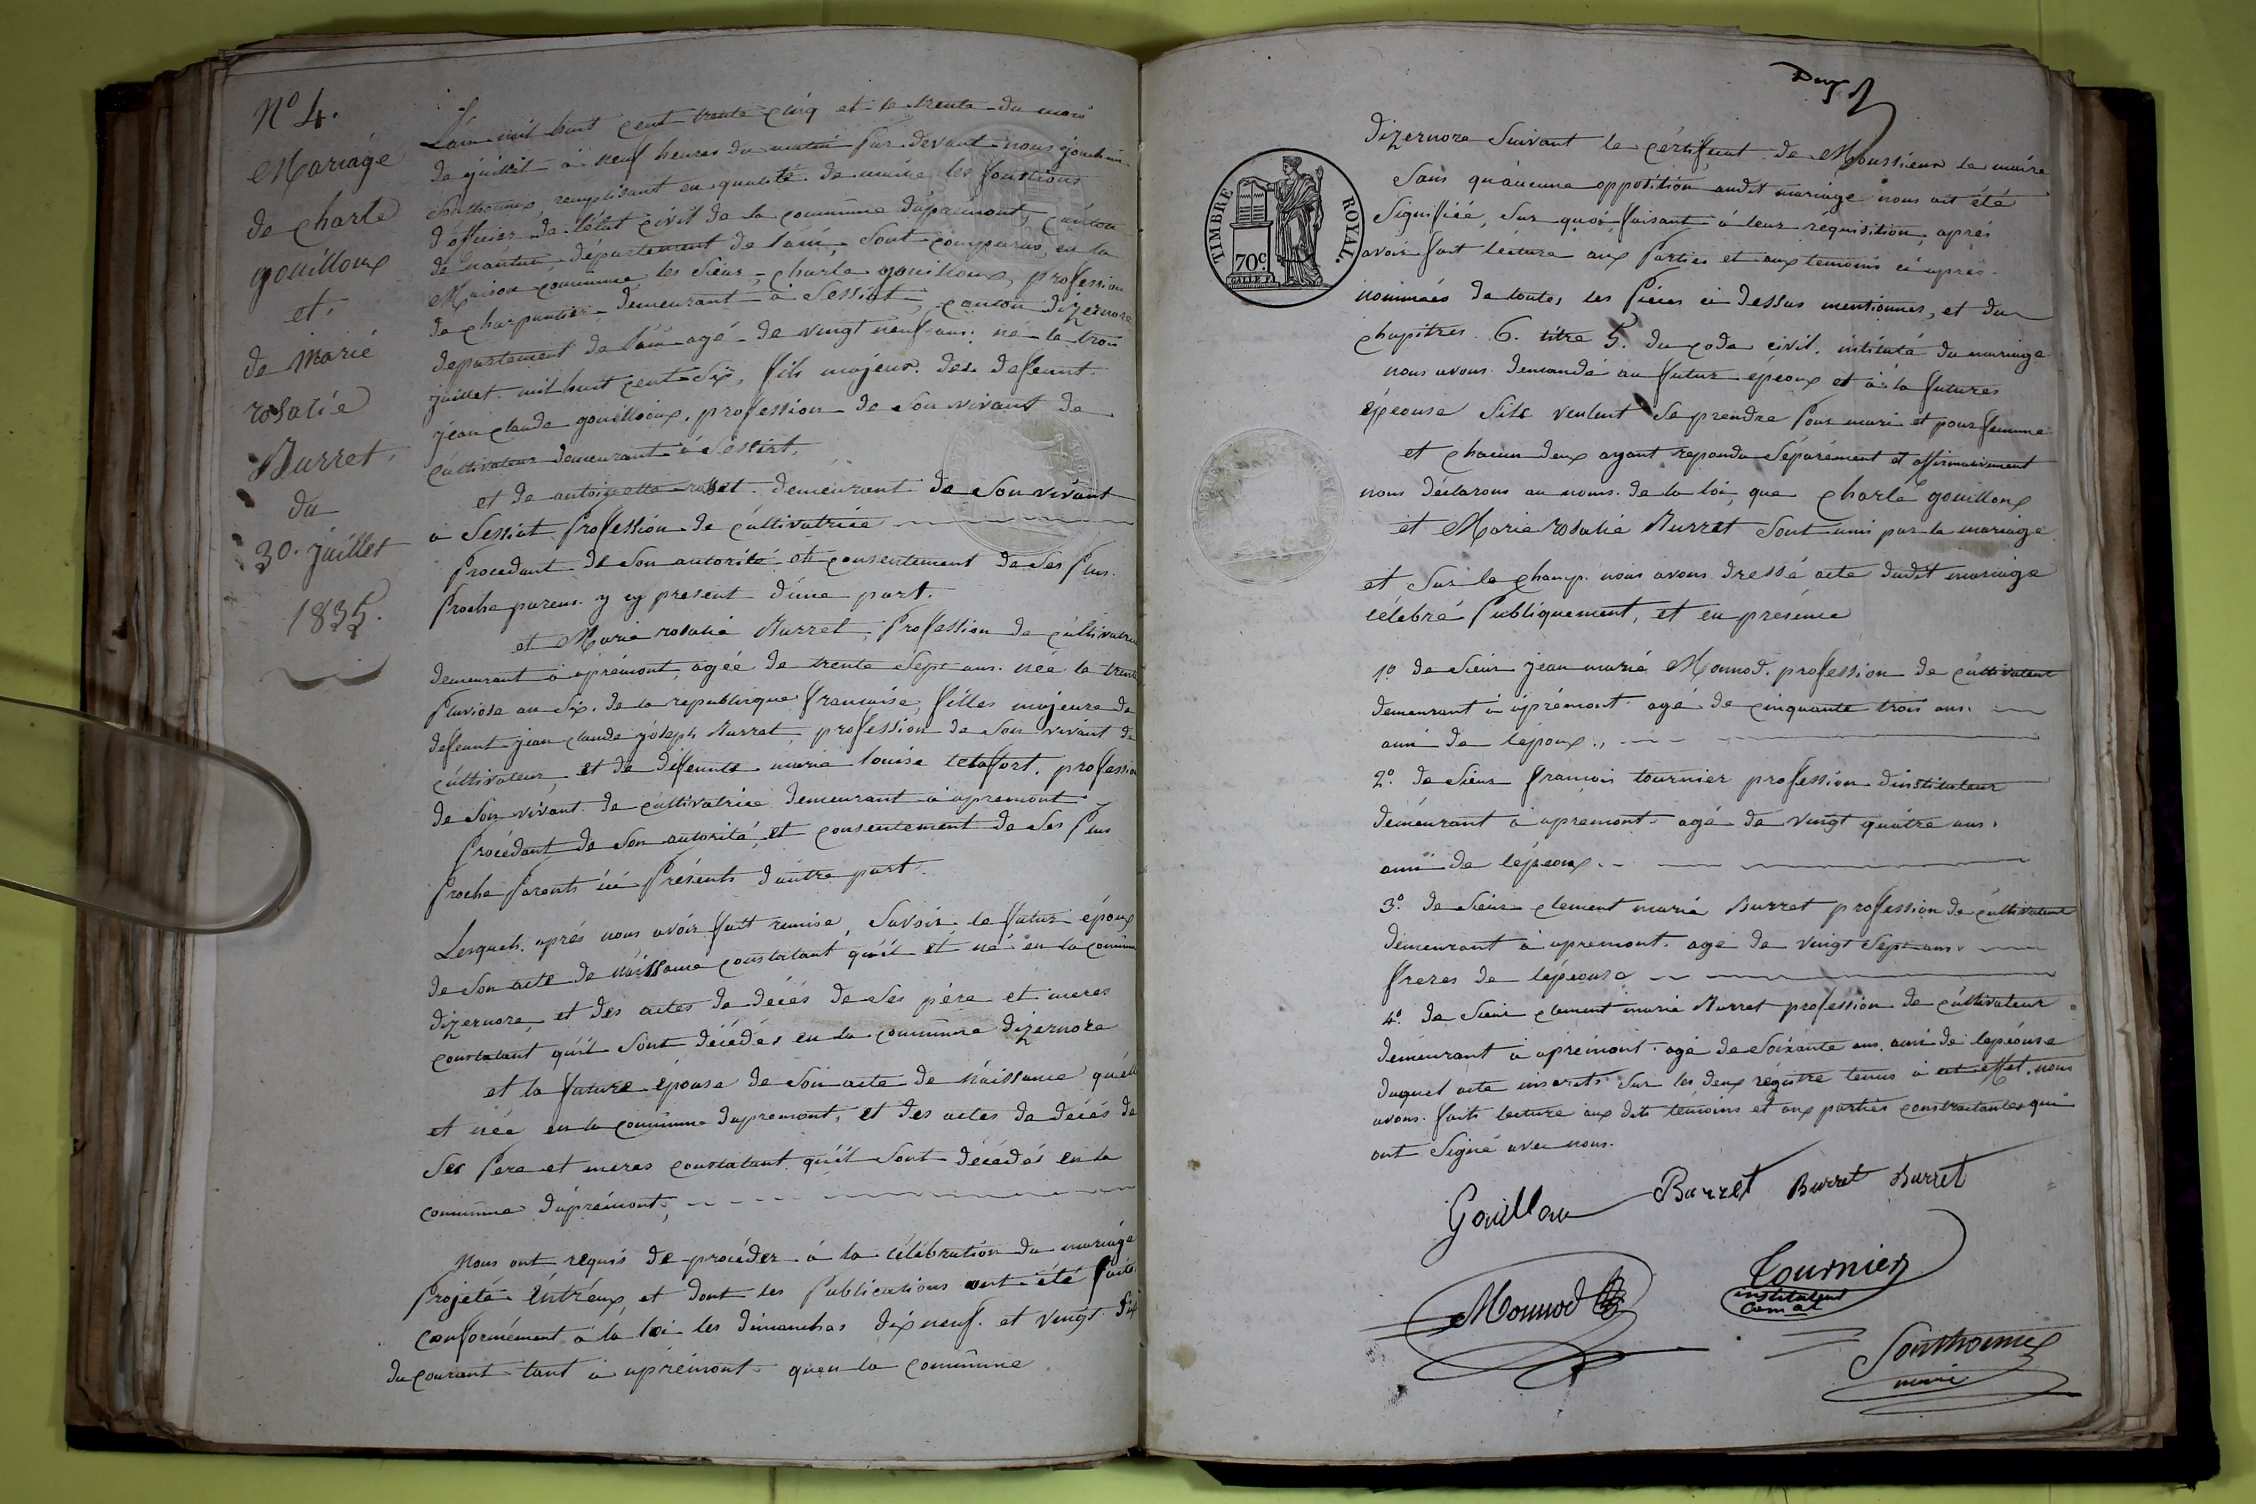 N° 4.
Mariage
de charle
gouilloux
et
de Marie
rosalie
Burret,
du
30. juillet
1835.
L'an mil huit cent trente cinq et le trente du mois
de juillet à neuf heures du matin par devant nous joachim
Sonthonnax remplissant en qualité de maire les fonctions
d'officier de l'état civil de la commune d'apremont, canton
de nantua, département de l'ain, sont comparus, en la
Maison commune les sieur charle gouilloux, profession
de charpentier demeurant à Sessiat, canton d'izernore
departement de l'ain agé de vingt neuf ans: né le trois
juillet mil huit cent six, fils majeur des defeunt
jean claude gouilloux, profession de son vivant de
cultivateur demeurant à Sessiat,
et de antoinette demeurant de son vivant
à Sessiat profession de cultivatrice
procedant de son autorité et consentement de ses plus
proche parens y cy present d'une part.
et Marie rosalie Burret, profession de cultivatrice
demeurant à apremont, agée de trente sept ans. née le trente
pluviose an six. de la republique francaise, filles majeure de
defeunt jean claude joseph Burret, profession de son vivant de
cultivateur, et de défeunte marie louise profession
de son vivant de cultivatrice demeurant à apremont
procédant de son autorité, et consentement de ses plus
proche parents ici présents d'autre part.
Lesquels. aprés nous avoir fait remise, savoir, le futur époux
de son acte de naissance constatant qu'il et né en la commune
dizernore, et des actes de décés de ses père et meres
constatant qu'il sont décédés en la commune dizernore
et la future épouse de son acte de naissance qu'elle
et née en la commune dapremont, et des actes de décés de
ses pere et meres constatant qu'il sont décédés en la
commune d'apremont,
Nous ont requis de procéder à la célébration du mariage
projeté entréux, et dont les publications ont été faite
conformément à la loi les dimanches dix neuf. et vingt six
du courant tant à apremont quen la commune
dizernore suivant le certificat de Moussieur le maire
sans qu'aucune opposition audit mariage nous ait été
signifiée, sur quoi faisant à leur requisition, aprés
avoir fait lecture aux parties et aux temoins ci aprés
nommées de toutes les pièces ci dessus mentionnes, et du
chapitres. 6. titre 5. du code civil. intitulé du mariage
nous avons demandé au futur epeoux et à la futures
épeouse sils veulent se prendre pour mari et pour femme
et chacun deux ayant repondu séparément et affirmativement
nous déclarons au noms de la loi, que charle gouilloux
et Marie rosalie Burret sont unis par le mariage
et sur le champ. nous avons dressé acte dudit mariage
célébré publiquement, et en présence
1° de sieur jean marie Monnod. profession de cultivateur
demeurant à apremont agé de cinquante trois ans.
ami de lépoux.,
2°. de sieur françois tournier profession dinstituteur
démeurant à apremont agé de vingt quatre ans.
ami de lépeoux.
3° de sieur clement marie Burret profession de cultivateur
démeurant à apremont. agé de vingt sept ans.
freres de lépeouse
4° de sieur clement marie Burret profession de cultivateur
démeurant à apremont. agé de soixante ans. ami de lepeouse
duquel acte inscrits sur les deux régistre tenus à cet effet. nous
avons. faits lecture aux dits témoins et aux parties contractantes qui
ont signé avec nous.
TIMBRE ROYAL.
70c
Gouilloux Burret Burret Burret
Monnod
Tournier
instituteur
Comal
Sonthonnax
maire